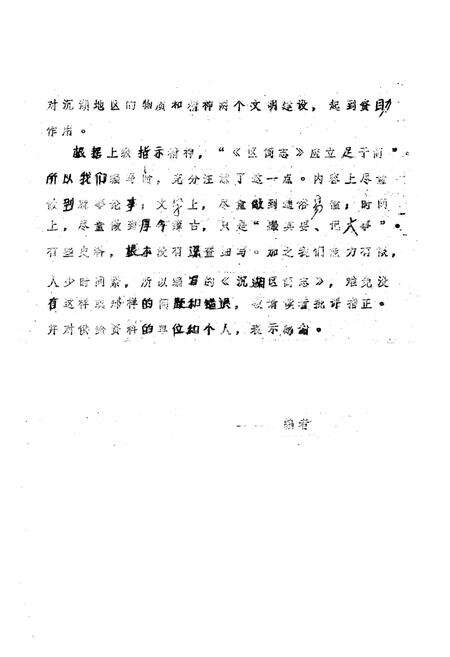 对沉湖地区的物质和精神两个文明建设，起到资助
作用。
根据上级指示精神，“《区简志》应立足于简”。
所以我们编写时，充分注意了这一点。内容上尽量
做到就事论事；文字上，尽量做到通俗易懂；时间
上，尽量做到厚今薄古，只是“撮其要、记大事”。
有些史料，根本没有详查细写。加之我们能力有限，
人少时间紧，所以编写的《沉湖区简志》，难免没
有这样或那样的问题和错误，敬请读者批评指正。
并对供给资料的单位和个人，表示感谢。
——编者